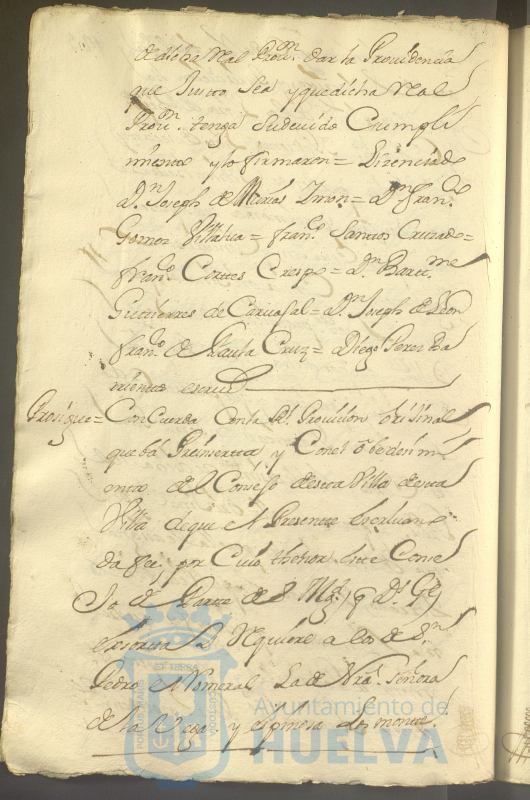 de dicha Real Provon. dar la Providencia
que Justo Sea y que dicha Real
Provn. tenga su devido Cumpli
miento y lo firmaron = Lizenciado
Dn. Joseph de = Dn. Franco.
Gomez Villalva = Franco. Santos Cruzado =
Franco. Cortes Crespo = Dn. Bartme.
Gutierres de Carvajal = Dn. Joseph de Leon
Franco. de Paula Cruz = Diego Perez Ba
rientos escrivo.
Prosigue = Concuerda Con la Rl. Provicion orijinal
que bá Preinserta y Con el obedesimi
ento del Consejo desta Villa desta
Villa de que el Presente Escrivano
da fee, por Cuio thenor este Conse
Jo de Parte de S. Mgd. q Ds. Ge
exsorta y Requiere a los de Sn.
Pedro el La de Nra. Señora
de la Vega y espinosa los montes.
Ayuntamiento de
HUELVA